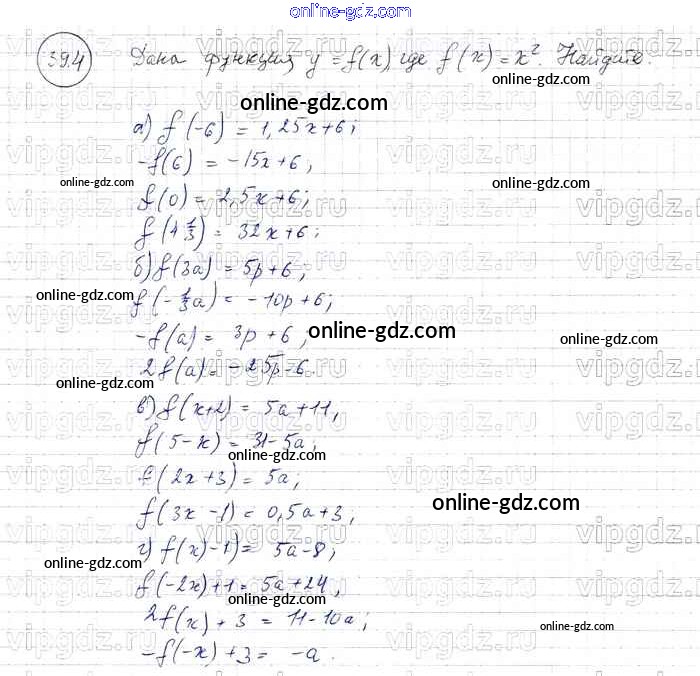 online-gdz.com
39.4 Дана функция y = f(x), где f(x) = x². Найдите:
online-gdz.com
а) f(-6) = 1,25x+6;
-f(6) = -15x+6;
online-gdz.com
online-gdz.com
f(0) = 2,5x+6;
f(4 1/3) = 32x+6;
б) f(3a) = 5p+6;
online-gdz.com
f(-1/3a) = -10p+6;
online-gdz.com
-f(a) = 3p+6;
online-gdz.com
2f(a) = -25p-6.
online-gdz.com
в) f(x+2) = 5a+11;
f(5-x) = 31-5a;
online-gdz.com
f(2x+3) = 5a;
online-gdz.com
f(3x-1) = 0,5a+3;
г) f(x)-1) = 5a-8;
online-gdz.com
f(-2x)+1 = 5a+24;
online-gdz.com
2f(x)+3 = 11-10a;
online-gdz.com
-f(-x)+3 = -a.
vipgdz.ru